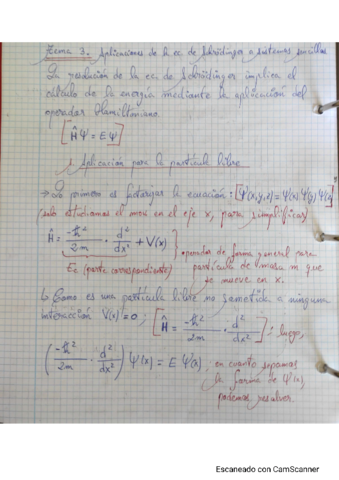 Tema 3. Aplicaciones de la ec. de Schrödinger a sistemas sencillos
La resolución de la ec. de Schrödinger implica el
cálculo de la energía mediante la aplicación del
operador Hamiltoniano.
[Ĥ Ψ = E Ψ]
1. Aplicación para la partícula libre
→ Lo primero es factorizar la ecuación: [Ψ(x,y,z) = Ψ(x) Ψ(y) Ψ(z)]
(solo estudiamos el movi en el eje x, para simplificar)
Ĥ = -ħ²/2m · d²/dx² + V(x) } • operador de forma general para
Ec (parte correspondiente) partícula de masa m que
se mueve en x.
↳ Como es una partícula libre no sometida a ninguna
interacción V(x) = 0; [Ĥ = -ħ²/2m · d²/dx²]; luego,
(-ħ²/2m · d²/dx²) Ψ(x) = E Ψ(x), en cuanto sepamos
la forma de Ψ(x),
podemos resolver.
Escaneado con CamScanner